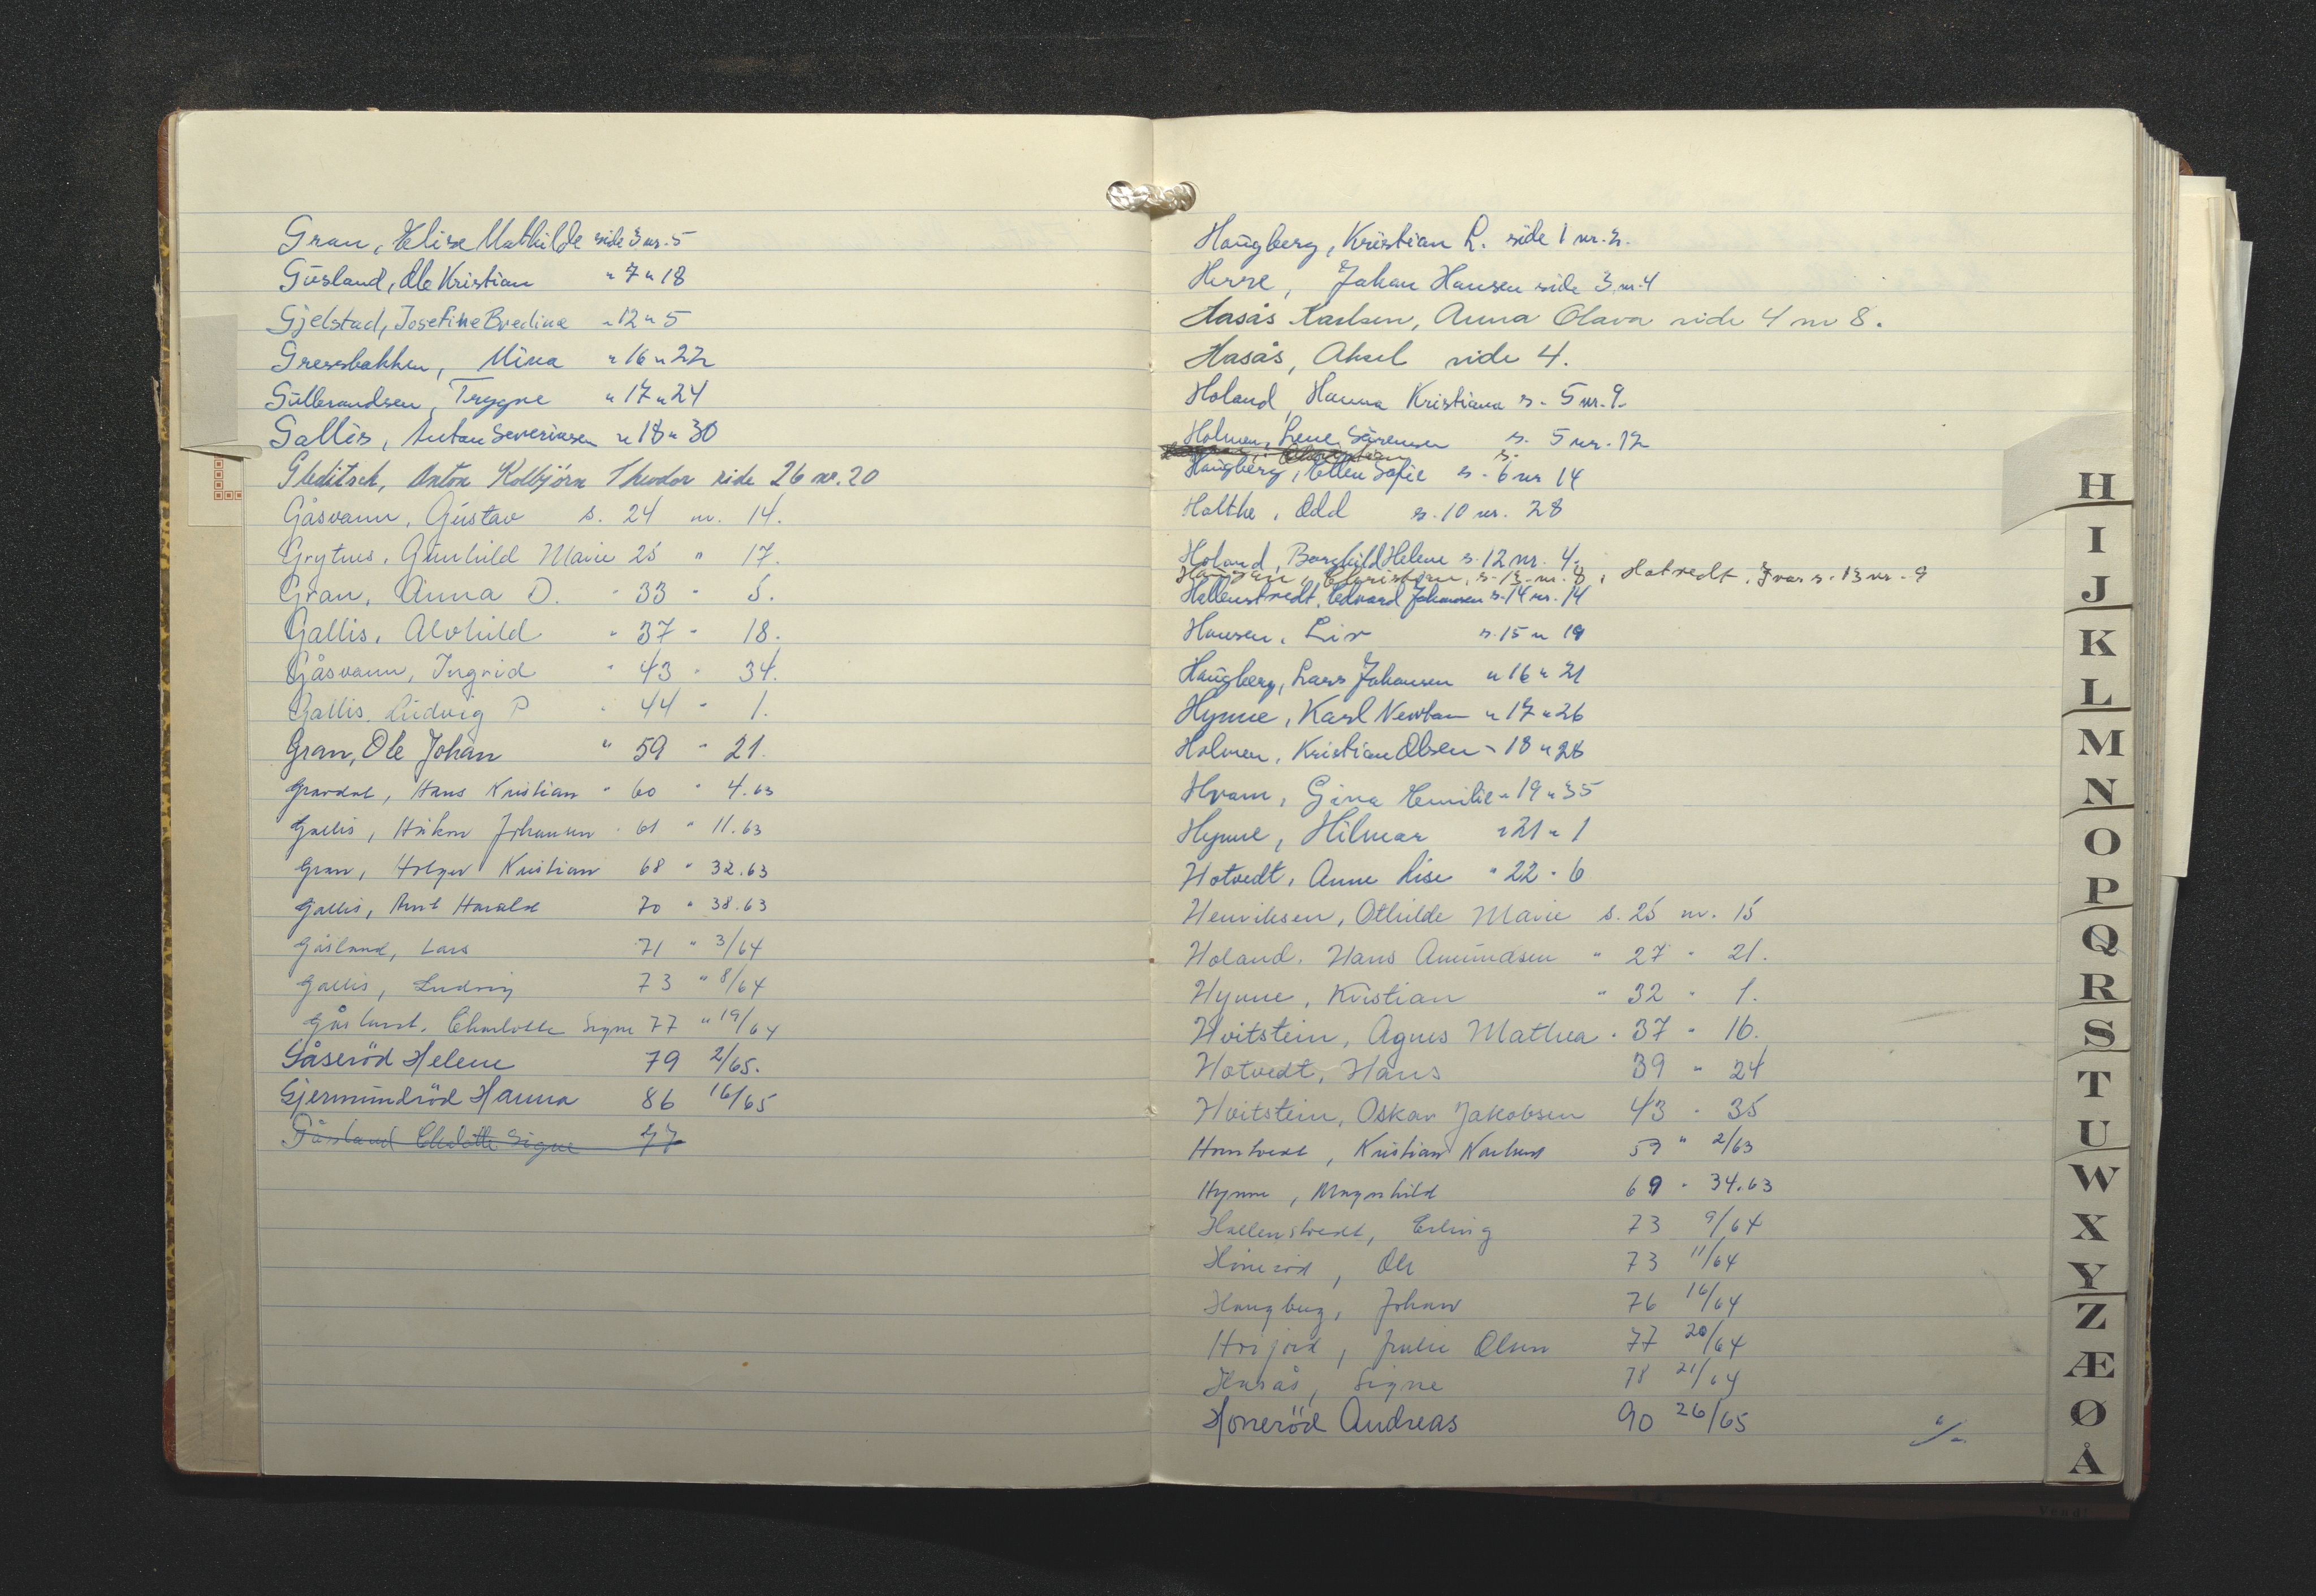 Gran, Elise Mathilde side 3 nr. 5
Gusland, Ole Kristian " 7 " 18
Gjelstad, Josefine Bredine " 12 " 5
Gressbakken, Mina " 16 " 22
Gulbrandsen, Trygve " 17 " 24
Gallis, Anton Severinsen " 18 " 30
Gleditsch, Anton Kolbjörn Theodor side 26 nr. 20
Gåsvann, Gustav s. 24 nr. 14.
Grytnes, Gunhild Marie 25 " 17.
Gran, Anna O. " 33 " 5.
Gallis, Alvhild " 37 " 18.
Gåsvann, Ingrid " 43 " 34.
Gallis, Ludvig P " 44 " 1.
Gran, Ole Johan " 59 " 21.
Gravdal, Hans Kristian " 60 " 4.63
Gallis, Håkon Johannen " 61 " 11.63
Gran, Holger Kristian 68 " 32.63
Gallis, Arnt Harald 70 " 38.63
Gåsland, Lars 71 " 3/64
Gallis, Ludvig 73 " 8/64
Gåslund, Charlotte Signe 77 " 19/64
Gåseröd Helene 79 2/65.
Gjermundröd Hanna 86 16/65
Gåsland Signe 77
Haugberg, Kristian L. side 1 nr. 2.
Herre, Johan Hansen side 3 nr. 4
Hasås Karlsen, Anna Olava side 4 nr 8.
Hasås, Aksel side 4.
Holand, Hanna Kristiana s. 5 nr. 9.
Holmen, Lene Sörensen s. 5 nr. 12
Haugberg, Ellen Sofie s. 6 nr 14
Holthe, Odd s. 10 nr. 28
Holand, Borghild Helene s. 12 nr. 4.
Haugen, Christian, s. 13 nr. 8, Hotvedt, Ivar s. 13 nr. 9
Hallenstvedt, Edvard Johansen s. 14 nr. 14
Hansen, Liv s. 15 " 19
Haugberg, Lars Johansen " 16 " 21
Hynne, Karl Newton " 17 " 26
Holmen, Kristian Olsen " 18 " 28
Hvam, Gina Emilie " 19 " 35
Hynne, Hilmar " 21 " 1
Hotvedt, Anne Lise " 22 " 6
Henriksen, Othilde Marie s. 25 nr. 15
Holand, Hans Amundsen " 27 " 21.
Hynne, Kristian " 32 " 1.
Hvitstein, Agnes Mathea " 37 " 16.
Hotvedt, Hans 39 " 24
Hvitstein, Oskar Jakobsen 43 " 35
Homtvedt, Kristian Karlsen 59 " 2/63
Hynne, Magnhild 69 " 34.63
Hallenstvedt, Erling 73 9/64
Höneröd, Ole 73 11/64
Haugberg, Johan 76 16/64
Horjord, Julie Olsen 77 20/64
Hasås, Signe 78 21/64
Honeröd Andreas 90 26/65
H
I
J
K
L
M
N
O
P
Q
R
S
T
U
W
X
Y
Z
Æ
Ø
Å